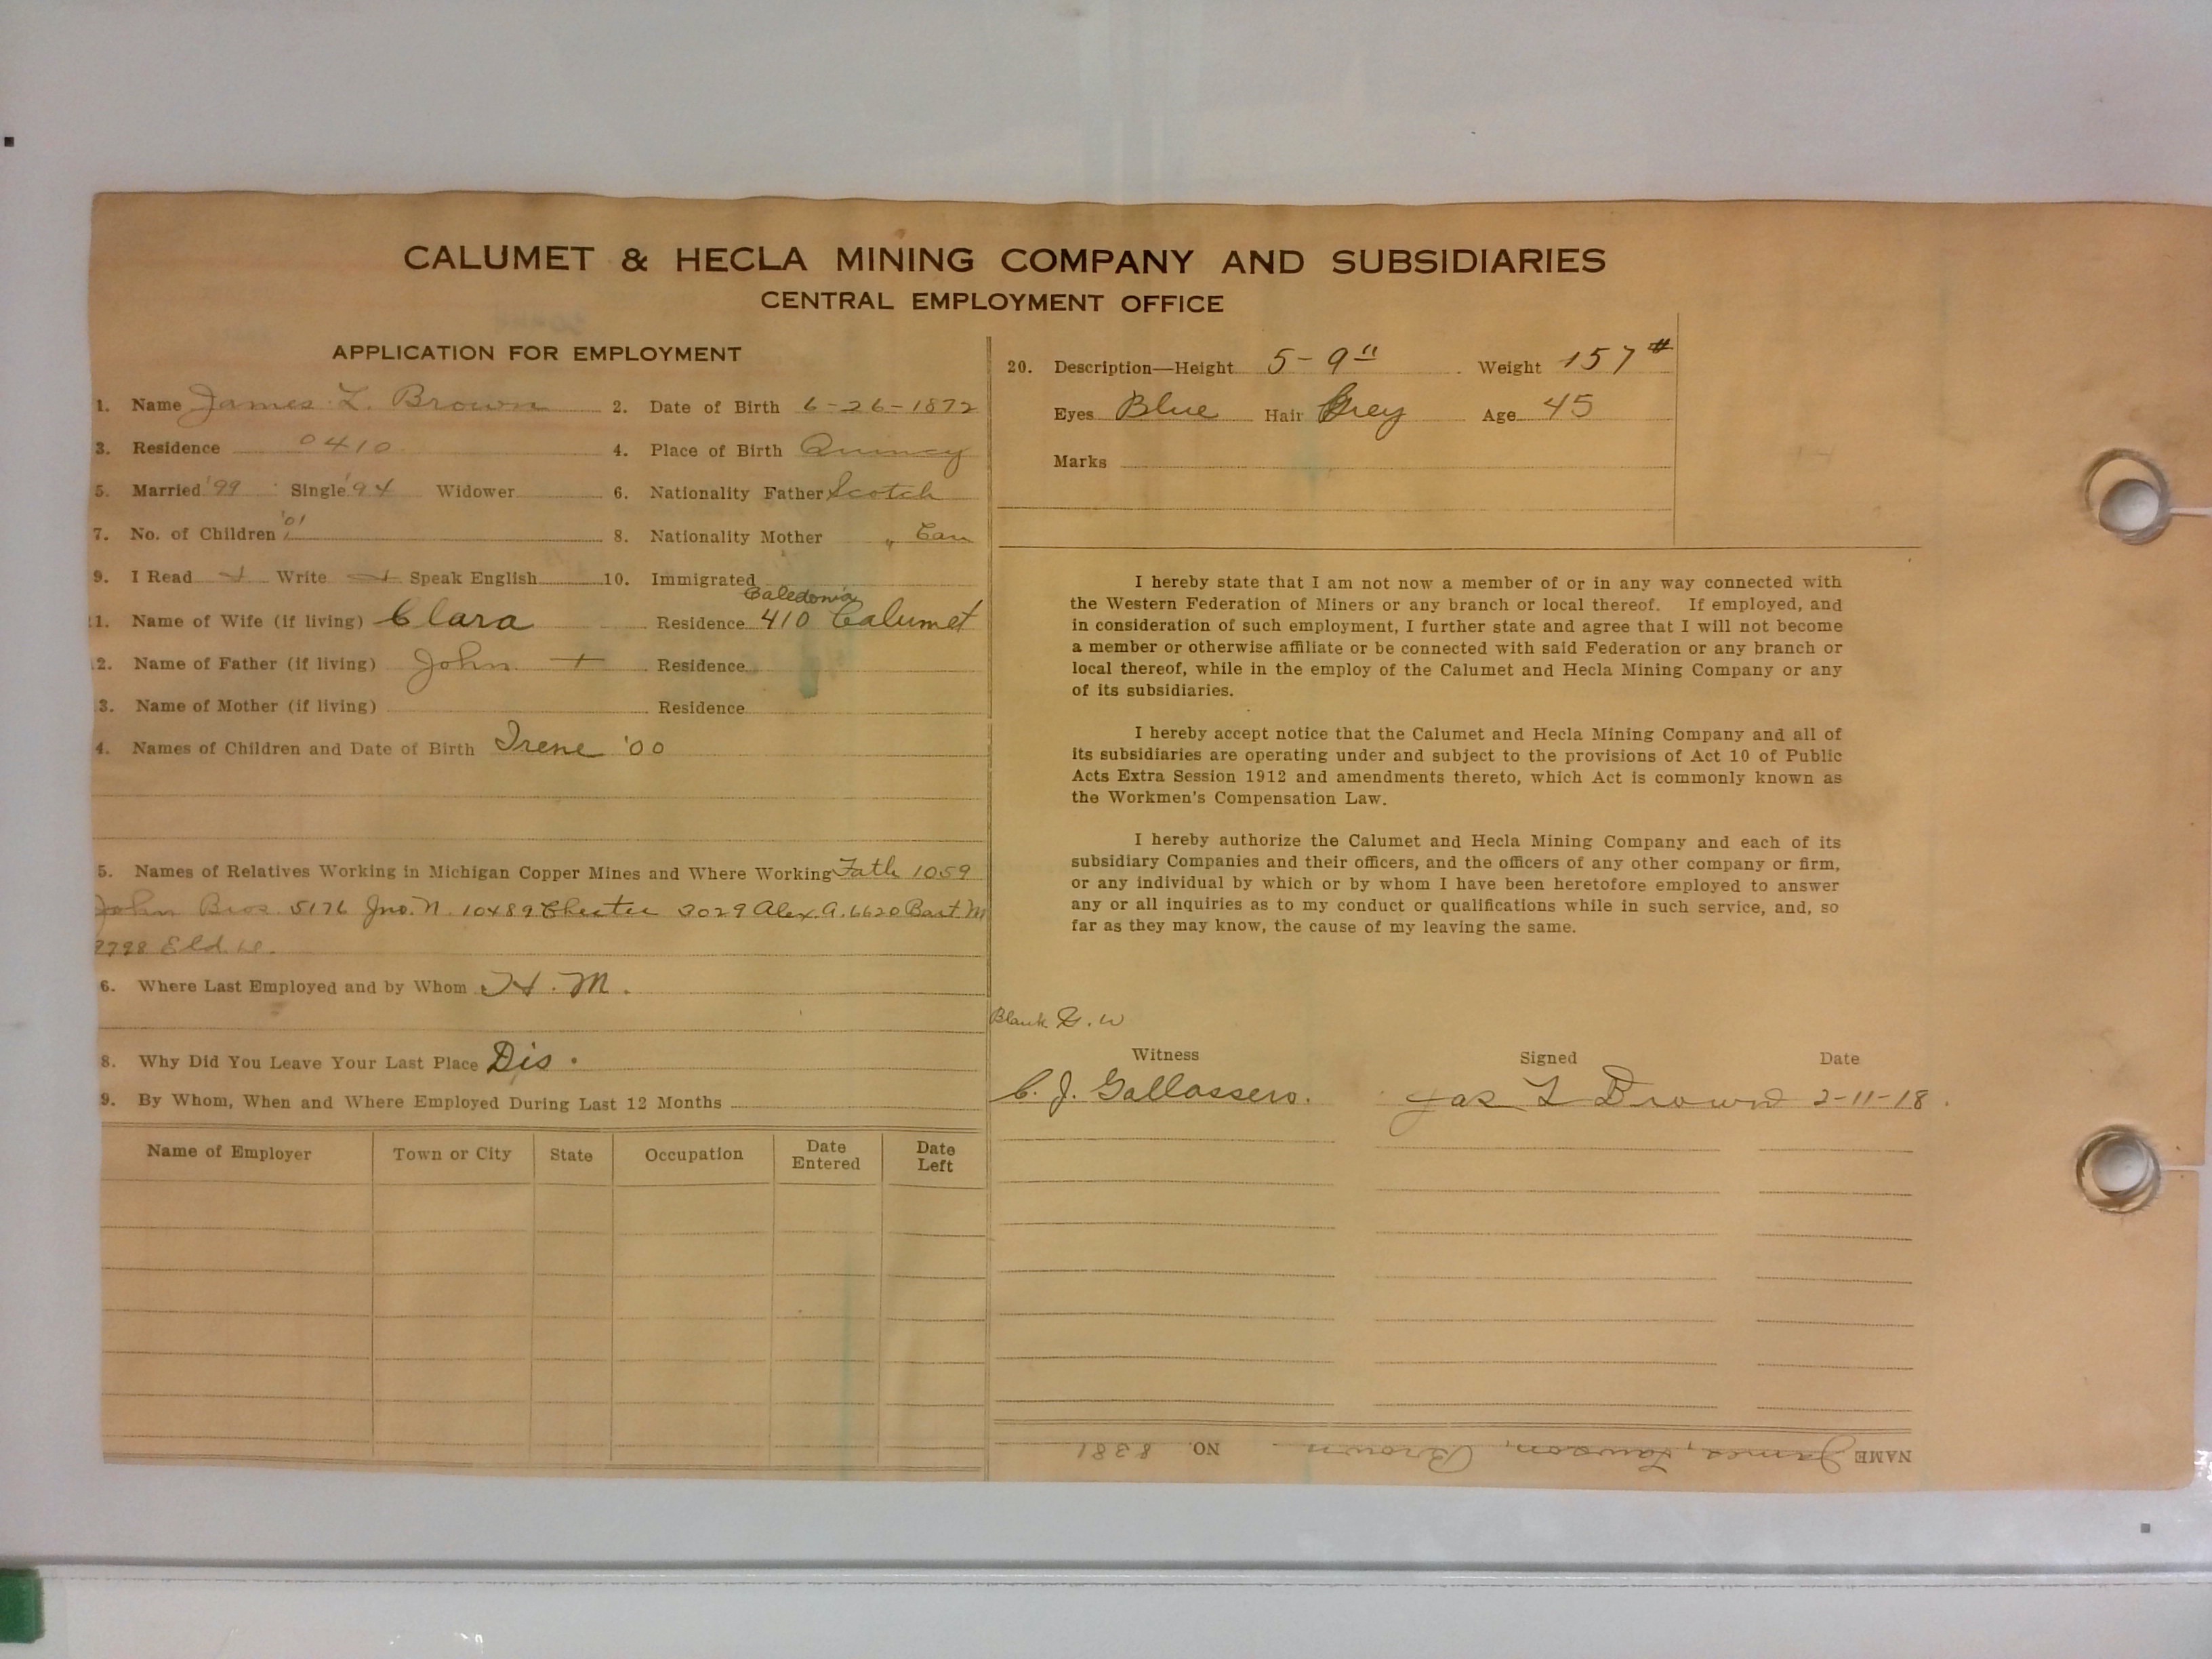 CALUMET & HECLA MINING COMPANY AND SUBSIDIARIES
CENTRAL EMPLOYMENT OFFICE
APPLICATION FOR EMPLOYMENT
1. Name James L. Brown 2. Date of Birth 6-26-1872
3. Residence 0410 4. Place of Birth Quincy
5. Married '99 Single '94 Widower 6. Nationality Father Scotch
7. No. of Children '01 8. Nationality Mother " Can
9. I Read Write Speak English 10. Immigrated
Caledonia
1. Name of Wife (if living) Clara Residence 410 Calumet
2. Name of Father (if living) John + Residence
3. Name of Mother (if living) Residence
4. Names of Children and Date of Birth Irene '00
5. Names of Relatives Working in Michigan Copper Mines and Where Working Fath 1059
John Bros. 5176 Jno. N. 10489 Chester 3029 Alex. A. 6620 Bart. M
Eld. W.
6. Where Last Employed and by Whom H. M.
8. Why Did You Leave Your Last Place Dis.
9. By Whom, When and Where Employed During Last 12 Months
Name of Employer Town or City State Occupation Date Entered Date Left
20. Description—Height 5-9" Weight 157#
Eyes Blue Hair Grey Age 45
Marks
I hereby state that I am not now a member of or in any way connected with
the Western Federation of Miners or any branch or local thereof. If employed, and
in consideration of such employment, I further state and agree that I will not become
a member or otherwise affiliate or be connected with said Federation or any branch or
local thereof, while in the employ of the Calumet and Hecla Mining Company or any
of its subsidiaries.
I hereby accept notice that the Calumet and Hecla Mining Company and all of
its subsidiaries are operating under and subject to the provisions of Act 10 of Public
Acts Extra Session 1912 and amendments thereto, which Act is commonly known as
the Workmen's Compensation Law.
I hereby authorize the Calumet and Hecla Mining Company and each of its
subsidiary Companies and their officers, and the officers of any other company or firm,
or any individual by which or by whom I have been heretofore employed to answer
any or all inquiries as to my conduct or qualifications while in such service, and, so
far as they may know, the cause of my leaving the same.
Blank G. W
Witness Signed Date
C. J. Gallassero. Jas L Brown 2-11-18.
NAME James, Lawson, Brown NO. 8381